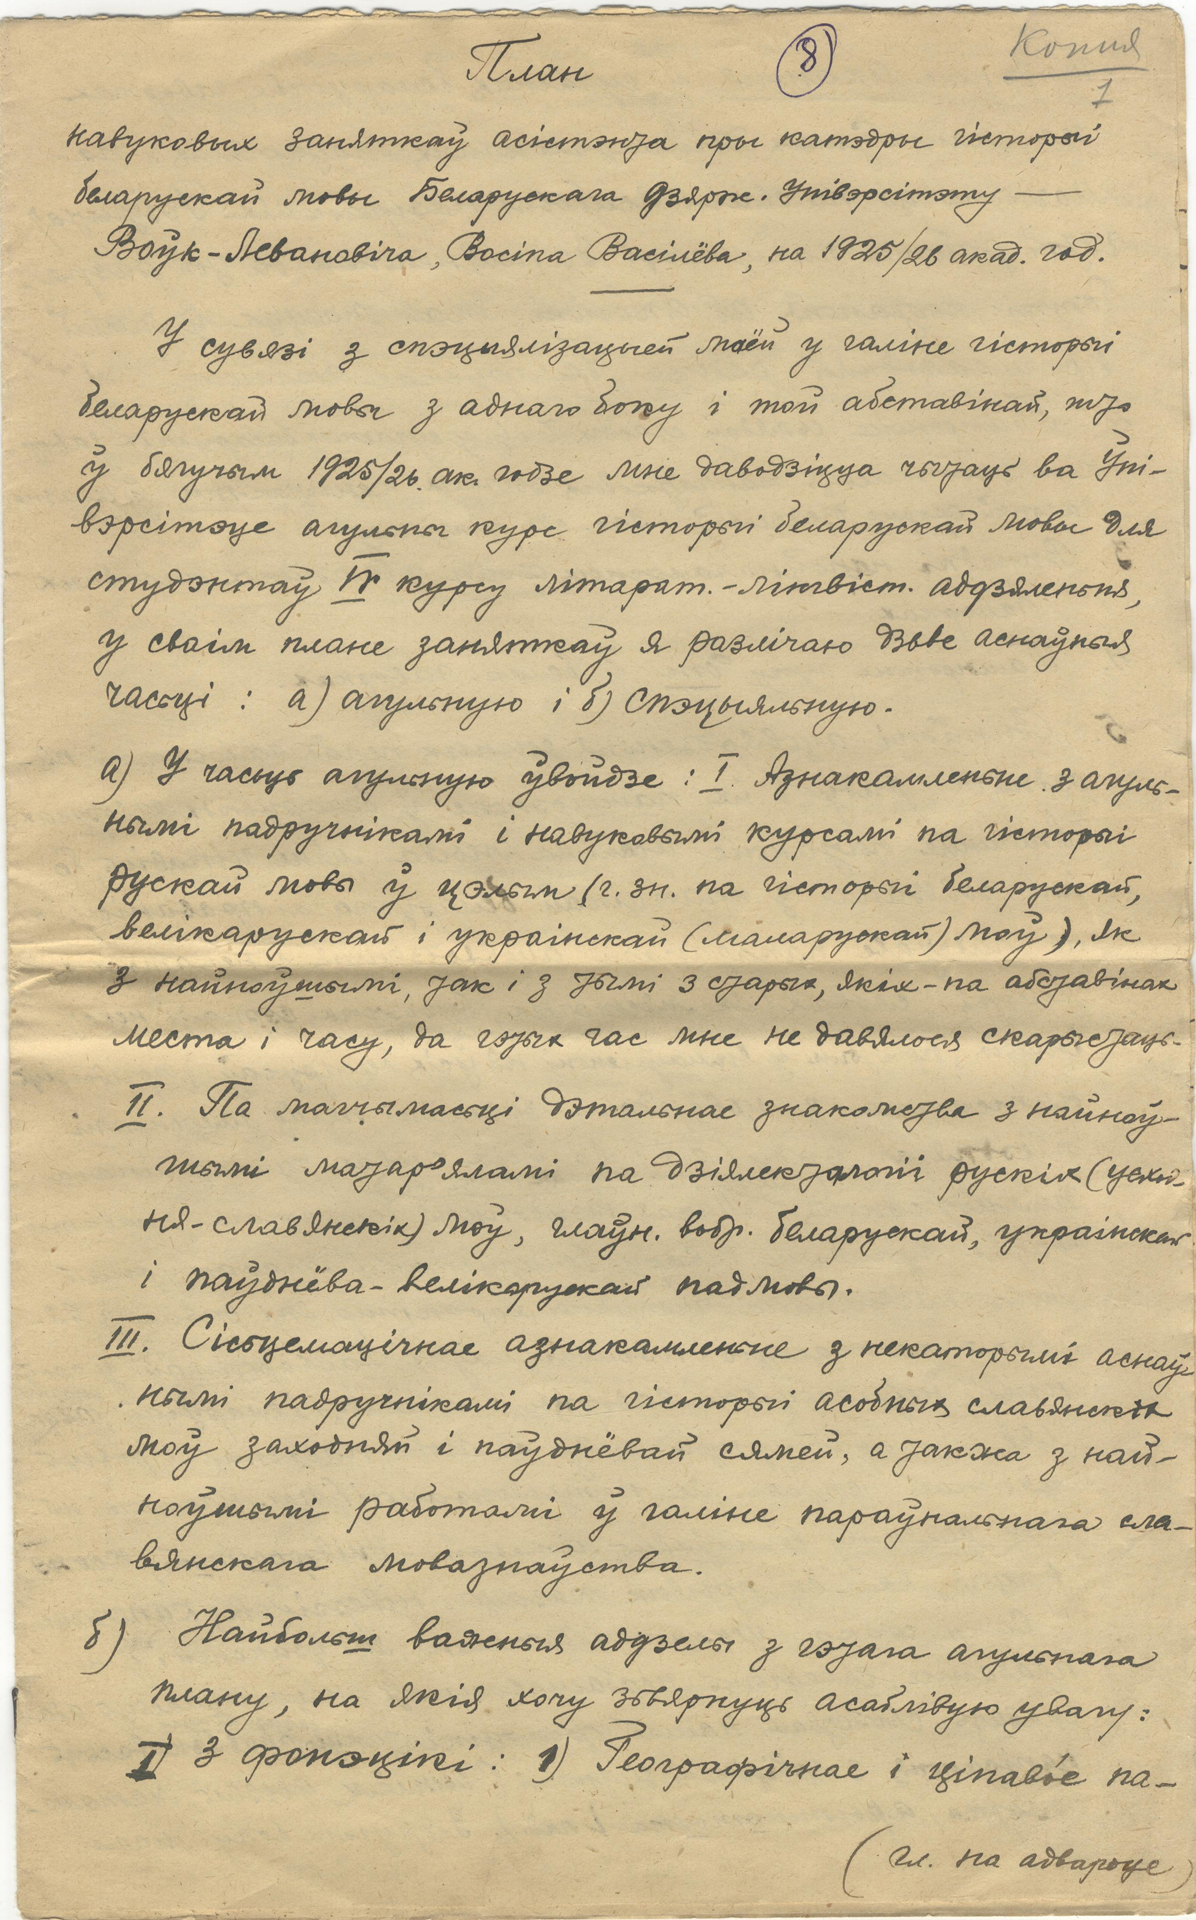 План
8
Копия
1
навуковых заняткаў асістэнта пры катэдры гісторыі
беларускай мовы Беларускага Дзярж. Унівэрсітэту —
Воўк-Левановіча, Восіпа Васілёва, на 1925/26 акад. год.
У сувязі з спэцыялізацыей маёй у галіне гісторыі
беларускай мовы з аднаго боку і той абставінай, што
ў бягучым 1925/26 ак. годзе мне даводзіцца чытаць ва Ўні-
вэрсітэце агульны курс гісторыі беларускай мовы для
студэнтаў IV курсу літарат.-лінгвіст. аддзяленьня,
у сваім плане заняткаў я разлічаю дзьве аснаўныя
часьці : а) агульную і б) спэцыяльную.
а) У часьць агульную ўвойдзе : I. Азнакамленьне з агуль-
нымі падручнікамі і навуковымі курсамі па гісторыі
рускай мовы ў цэлым (г. зн. па гісторыі беларускай,
велікарускай і украінскай (маларускай) моў), як
з найноўшымі, так і з тымі з старых, якіх - па абставінах
места і часу, да гэтых час мне не давялося скарыстаць.
II. Па магчымасьці дэтальнае знакомства з найноў-
шымі матар'яламі па дзіялекталогіі рускіх (усход-
ня-славянскіх) моў, глаўн. вобр. беларускай, украінскай
і паўднёва-велікарускай падмовы.
III. Сісьцемацічнае азнакамленьне з некаторымі аснаў-
нымі падручнікамі па гісторыі асобных славянскіх
моў заходняй і паўднёвай сямей, а такжа з най-
ноўшымі работамі ў галіне параўнальнага сла-
вянскага мовазнаўства.
б) Найбольш важныя аддзелы з гэтага агульнага
плану, на якія хочу зьвярнуць асаблівую увагу:
I) З фонэцікі : 1) Геаграфічнае і ціпавое па-
(гл. на адвароце)